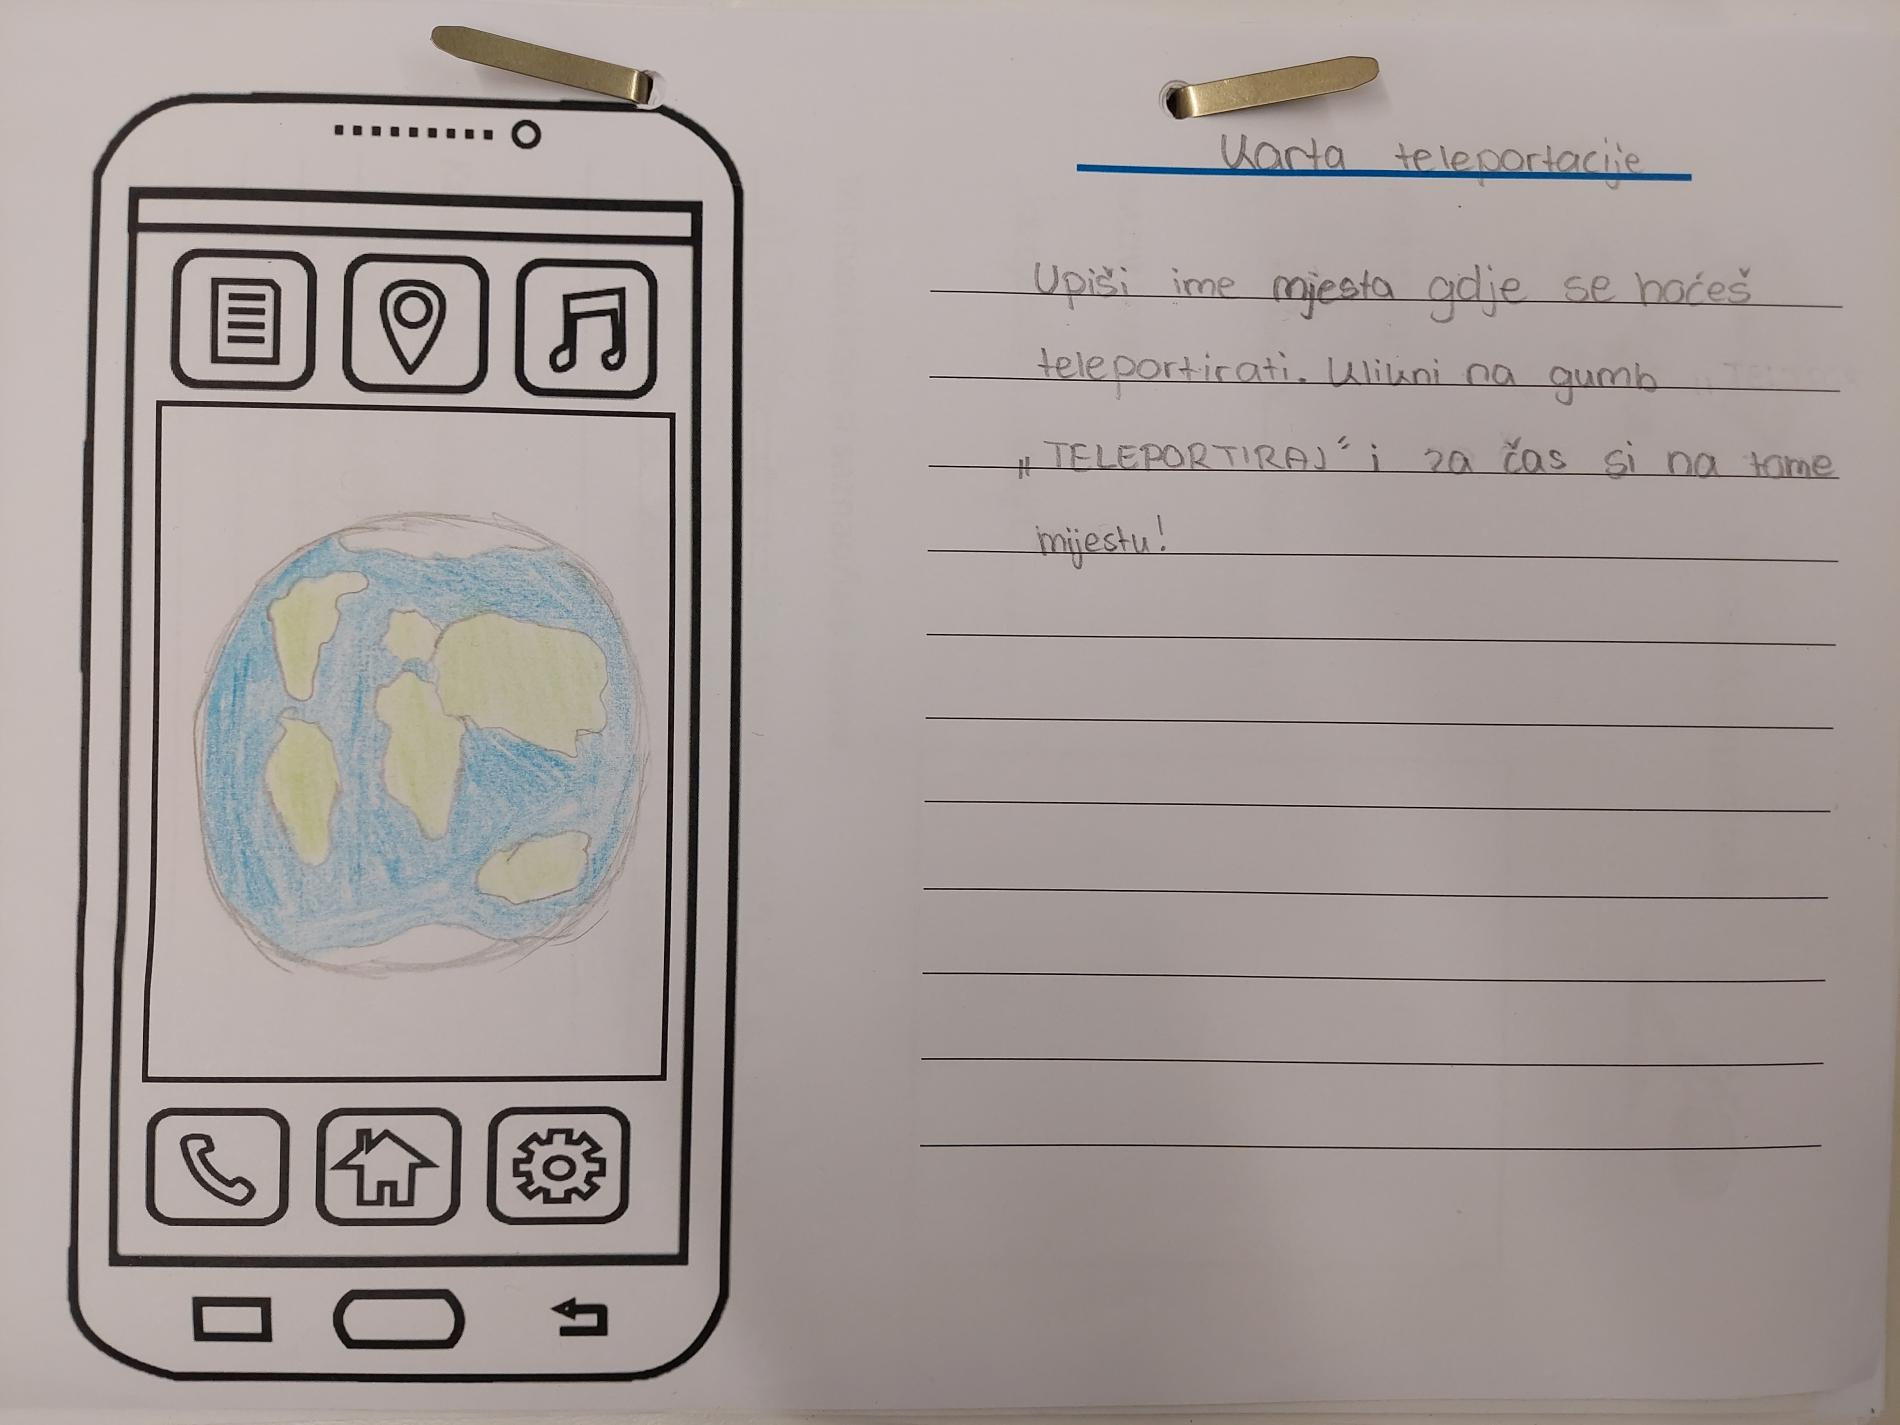 Karta teleportacije
Upiši ime mjesta gdje se hoćeš
teleportirati. Klikni na gumb
„TELEPORTIRAJ“ i za čas si na tome
mijestu!